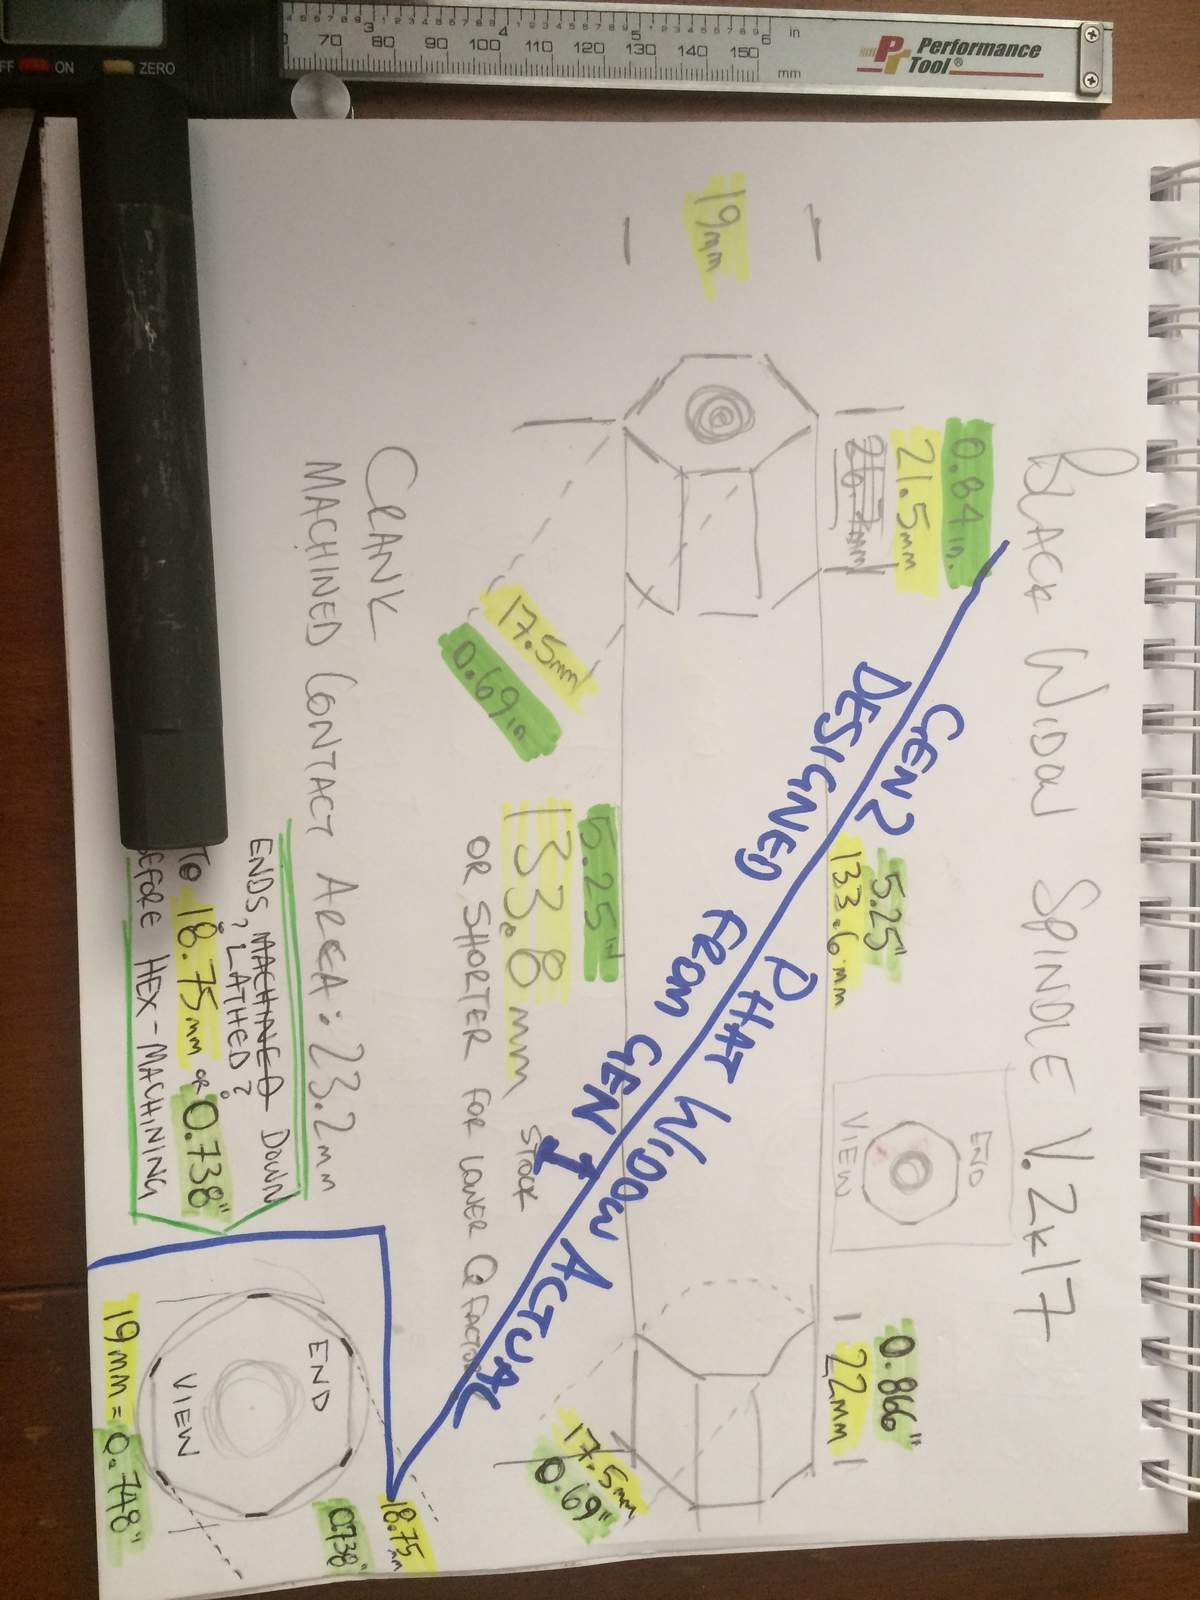 BLACK WIDOW SPINDLE V.2K17
0.84 in.
21.5mm
26.7mm
19mm
17.5mm
0.69 in
5.25"
133.6mm
END
VIEW
0.866"
22mm
GEN2 PHAT WIDOW ACTUAL
DESIGNED FROM GEN I
5.25"
133.8mm
STOCK
OR SHORTER FOR LOWER Q FACTOR
17.5mm
0.69"
CRANK
MACHINED CONTACT AREA: 23.2mm
ENDS, MACHINED DOWN
LATHED?
TO 18.75mm OR 0.738"
BEFORE HEX-MACHINING
END
VIEW
18.75
mm
0.738"
19mm = 0.748"
Performance
Tool®
in
mm
3 4 5 6
70 80 90 100 110 120 130 140 150
OFF ON ZERO